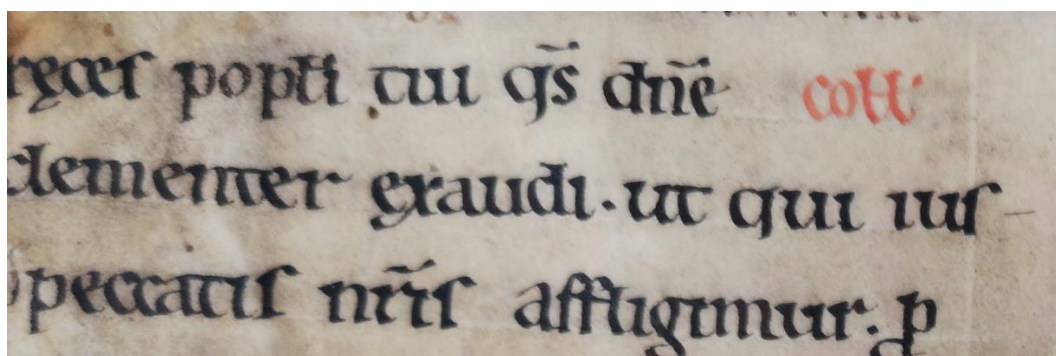 ręces popłi tui qs̄ dn̄e cołł
clementer ęxaudi · ut qui ius
peccatis nr̄is affligimur · p